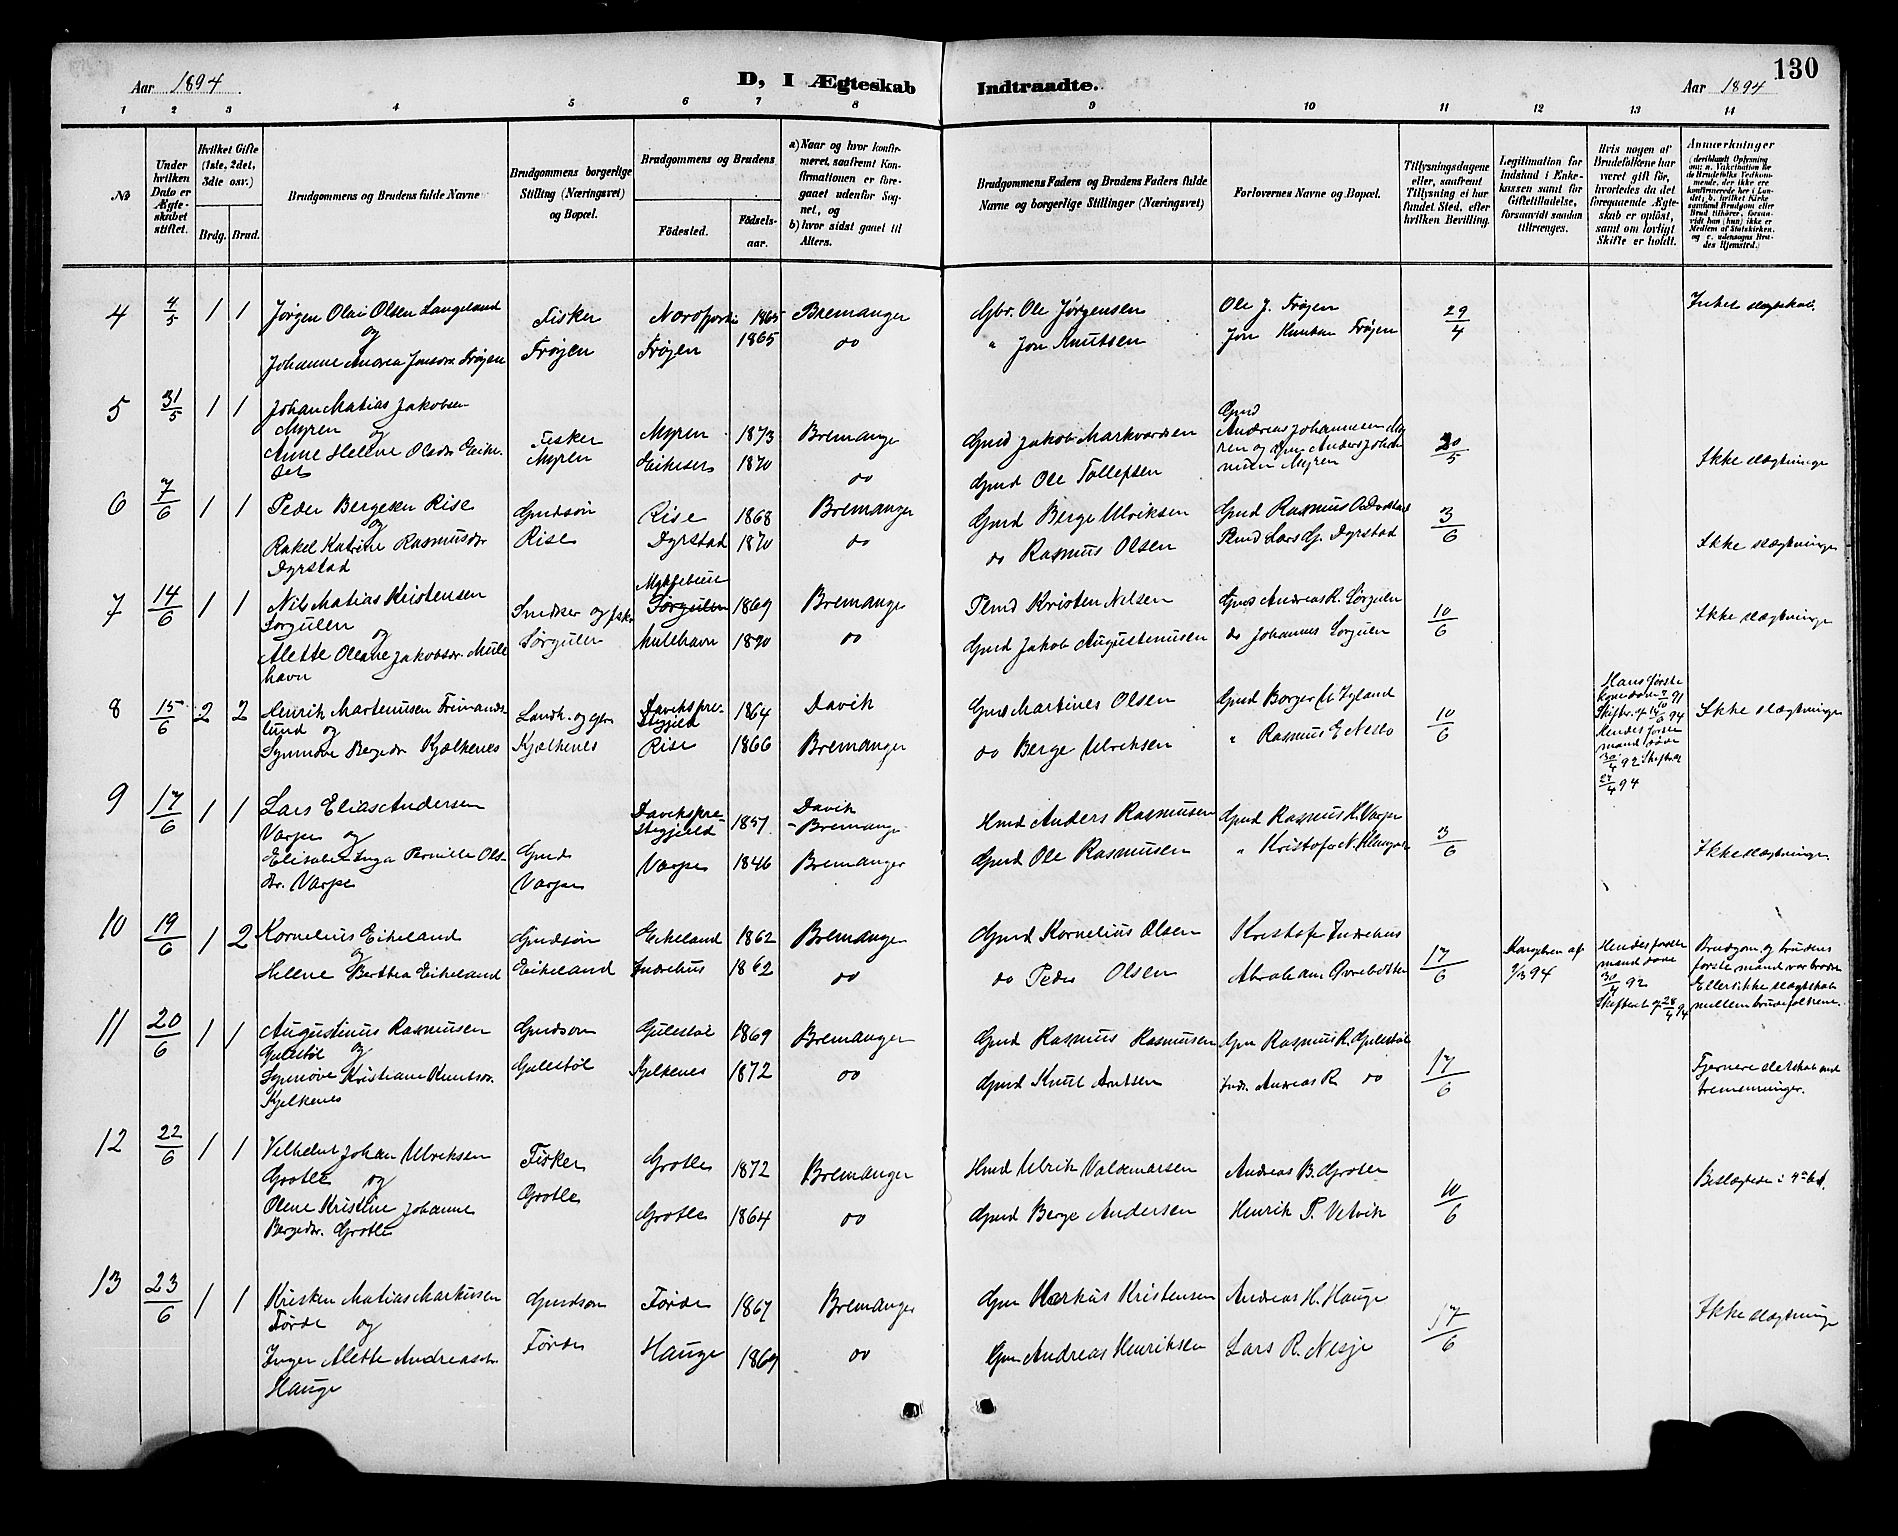 130
Aar 1894
D, I Ægteskab
Indtraadte.
Aar 1894
1 2 3 4 5 6 7 8 9 10 11 12 13 14
№
Under hvilken Dato er Ægteskabet stiftet.
Hvilket Gifte (1ste, 2det, 3die osv.)
Brdg. Brud.
Brudgommens og Brudens fulde Navne
Brudgommens borgerlige Stilling (Næringsvei) og Bopæl.
Brudgommens og Brudens
Födested.
Födselsaar.
a) Naar og hvor konfirmeret, saafremt Konfirmationen er foregaaet udenfor Sognet, og
b) hvor sidst gaaet til Alters.
Brudgommens Faders og Brudens Faders fulde Navne og borgerlige Stillinger (Næringsvei)
Forlovernes Navne og Bopæl.
Tillysningsdagene eller, saafremt Tillysning ei har fundet Sted, efter hvilken Bevilling.
Legitimation for Indskud i Enkekassen samt for Giftetilladelse, forsaavidt saadan tiltrænges.
Hvis nogen af Brudefolkene har været gift før, hvorledes da det foregaaende Ægteskab er oplöst, samt om lovligt Skifte er holdt.
Anmærkninger
4 4/5 1 1 Jørgen Olai Olsen Langeland
og
Johanne Andrea Jonsdr. Frøjen
Fisker
Frøjen
1865
Frøjen 1865
Bremanger
do
Gbr. Ole Jørgensen
" Jon Knutsen
Ole J. Frøjen
Jon Knutsen Frøjen
29/4
Intet slegtskab.
5 31/5 1 1 Johan Matias Jakobsen
Myren og
Anne Helene Olsdr. Eikeset
Fisker
Myren
Myren 1873
Eikeset 1870
Bremanger
do
Gmd Jakob Markvardsen
Gmd Ole Tollefsen
Gmd
Andreas Johannesen Myren og
Myren
20/5
Ikke slegtninge
6 7/6 1 1 Peder Bergesen Rise
og
Rakel Katrine Rasmusdr
Dyrstad
Gmdsøn
Rise
Rise 1868
Dyrstad 1870
Bremanger
do
Gmd Berge Ulriksen
do Rasmus Olsen
Gmd Rasmus O. Dyrstad
Plmd Lars G. Dyrstad
3/6
Ikke slegtninge
7 14/6 1 1 Nils Matias Kristensen
Sørgulen
og
Alette Oleane Jakobsdr. Mulehavn
Sørgulen
Myklebust
Sørgulen 1869
Mulehavn 1870
Bremanger
do
Plmd Kristen Nilsen
Gmd Jakob Augustinusen
Gmd Andreas R. Sørgulen
do Johannes Sørgulen
10/6
Ikke slegtninge
8 15/6 2 2 Henrik Martinusen Frimandslund og
Synnøve Bergedr Kjelkenes
Landh. og gbr
Kjelkenes
Davikspræstegjeld 1864
Rise 1866
Davik
Bremanger
Gmd Martines Olsen
do Berge Ulriksen
" Rasmus E. Nesbø
10/6
Hans første
Hendes første
mand døde
30/4 92 Skiftet
27/4 94
Ikke slegtninge
9 17/6 1 1 Lars Elias Andersen
Varpe og
Elisabet Inga Pernille Olsdr. Varpe
Gmd
Varpe
Davikspræstegjeld 1857
Varpe 1846
Davik
- Bremanger
Bremanger
Hmd Anders Rasmusen
Gmd Ole Rasmusen
Gmd Rasmus H. Varpe
" Kristofer N.
3/6
Ikke slegtninge.
10 19/6 1 2 Kornelius Eikeland
og
Helene Berthea Eikeland
Gmdsøn
Eikeland
Eikeland 1862
Indrehus 1862
Bremanger
do
Gmd Kornelius Olsen
do Peder Olsen
Kristofer Indrehus
Abraham Øvrebotten
17/6
Hendes første
mand døde
30/4 92
Skiftet 28/4 94
Brudgom og brudens
første mand var brødre
Ellers ikke slegtskab
mellem brudefolkene.
11 20/6 1 1 Augustinus Rasmusen
Gulestøl og
Synnøve Kristiane Knutsdr.
Kjelkenes
Gmdsøn
Gulestøl
Gulestøl 1869
Kjelkenes 1872
Bremanger
do
Gmd Rasmus Rasmusen
Gmd Knut Arntsen
Gm Rasmus R. Gulestøl
Andreas R. do
17/6
Fjernere slektskab end
tremenninger.
12 22/6 1 1 Vilhelm Johan Ulriksen
Grotle og
Oline Kristine Johanne
Bergedr. Grotle
Fisker
Grotle
Grotle 1872
Grotle 1864
Bremanger
do
Hmd Ulrik Valdemarsen
Gmd Berge Andersen
Andreas B. Grotle
Henrik P. Vetvik
10/6
Beslegtede i 4de led.
13 23/6 1 1 Kristen Matias Markussen
Førde og
Inger Alette Andreasdr.
Hauge
Gmdsøn
Førde
Førde 1867
Hauge 1869
Bremanger
do
Gm Markus Kristensen
Gm Andreas Henriksen
Andreas H. Hauge
Lars R. Nesje
17/6
Ikke slegtninge